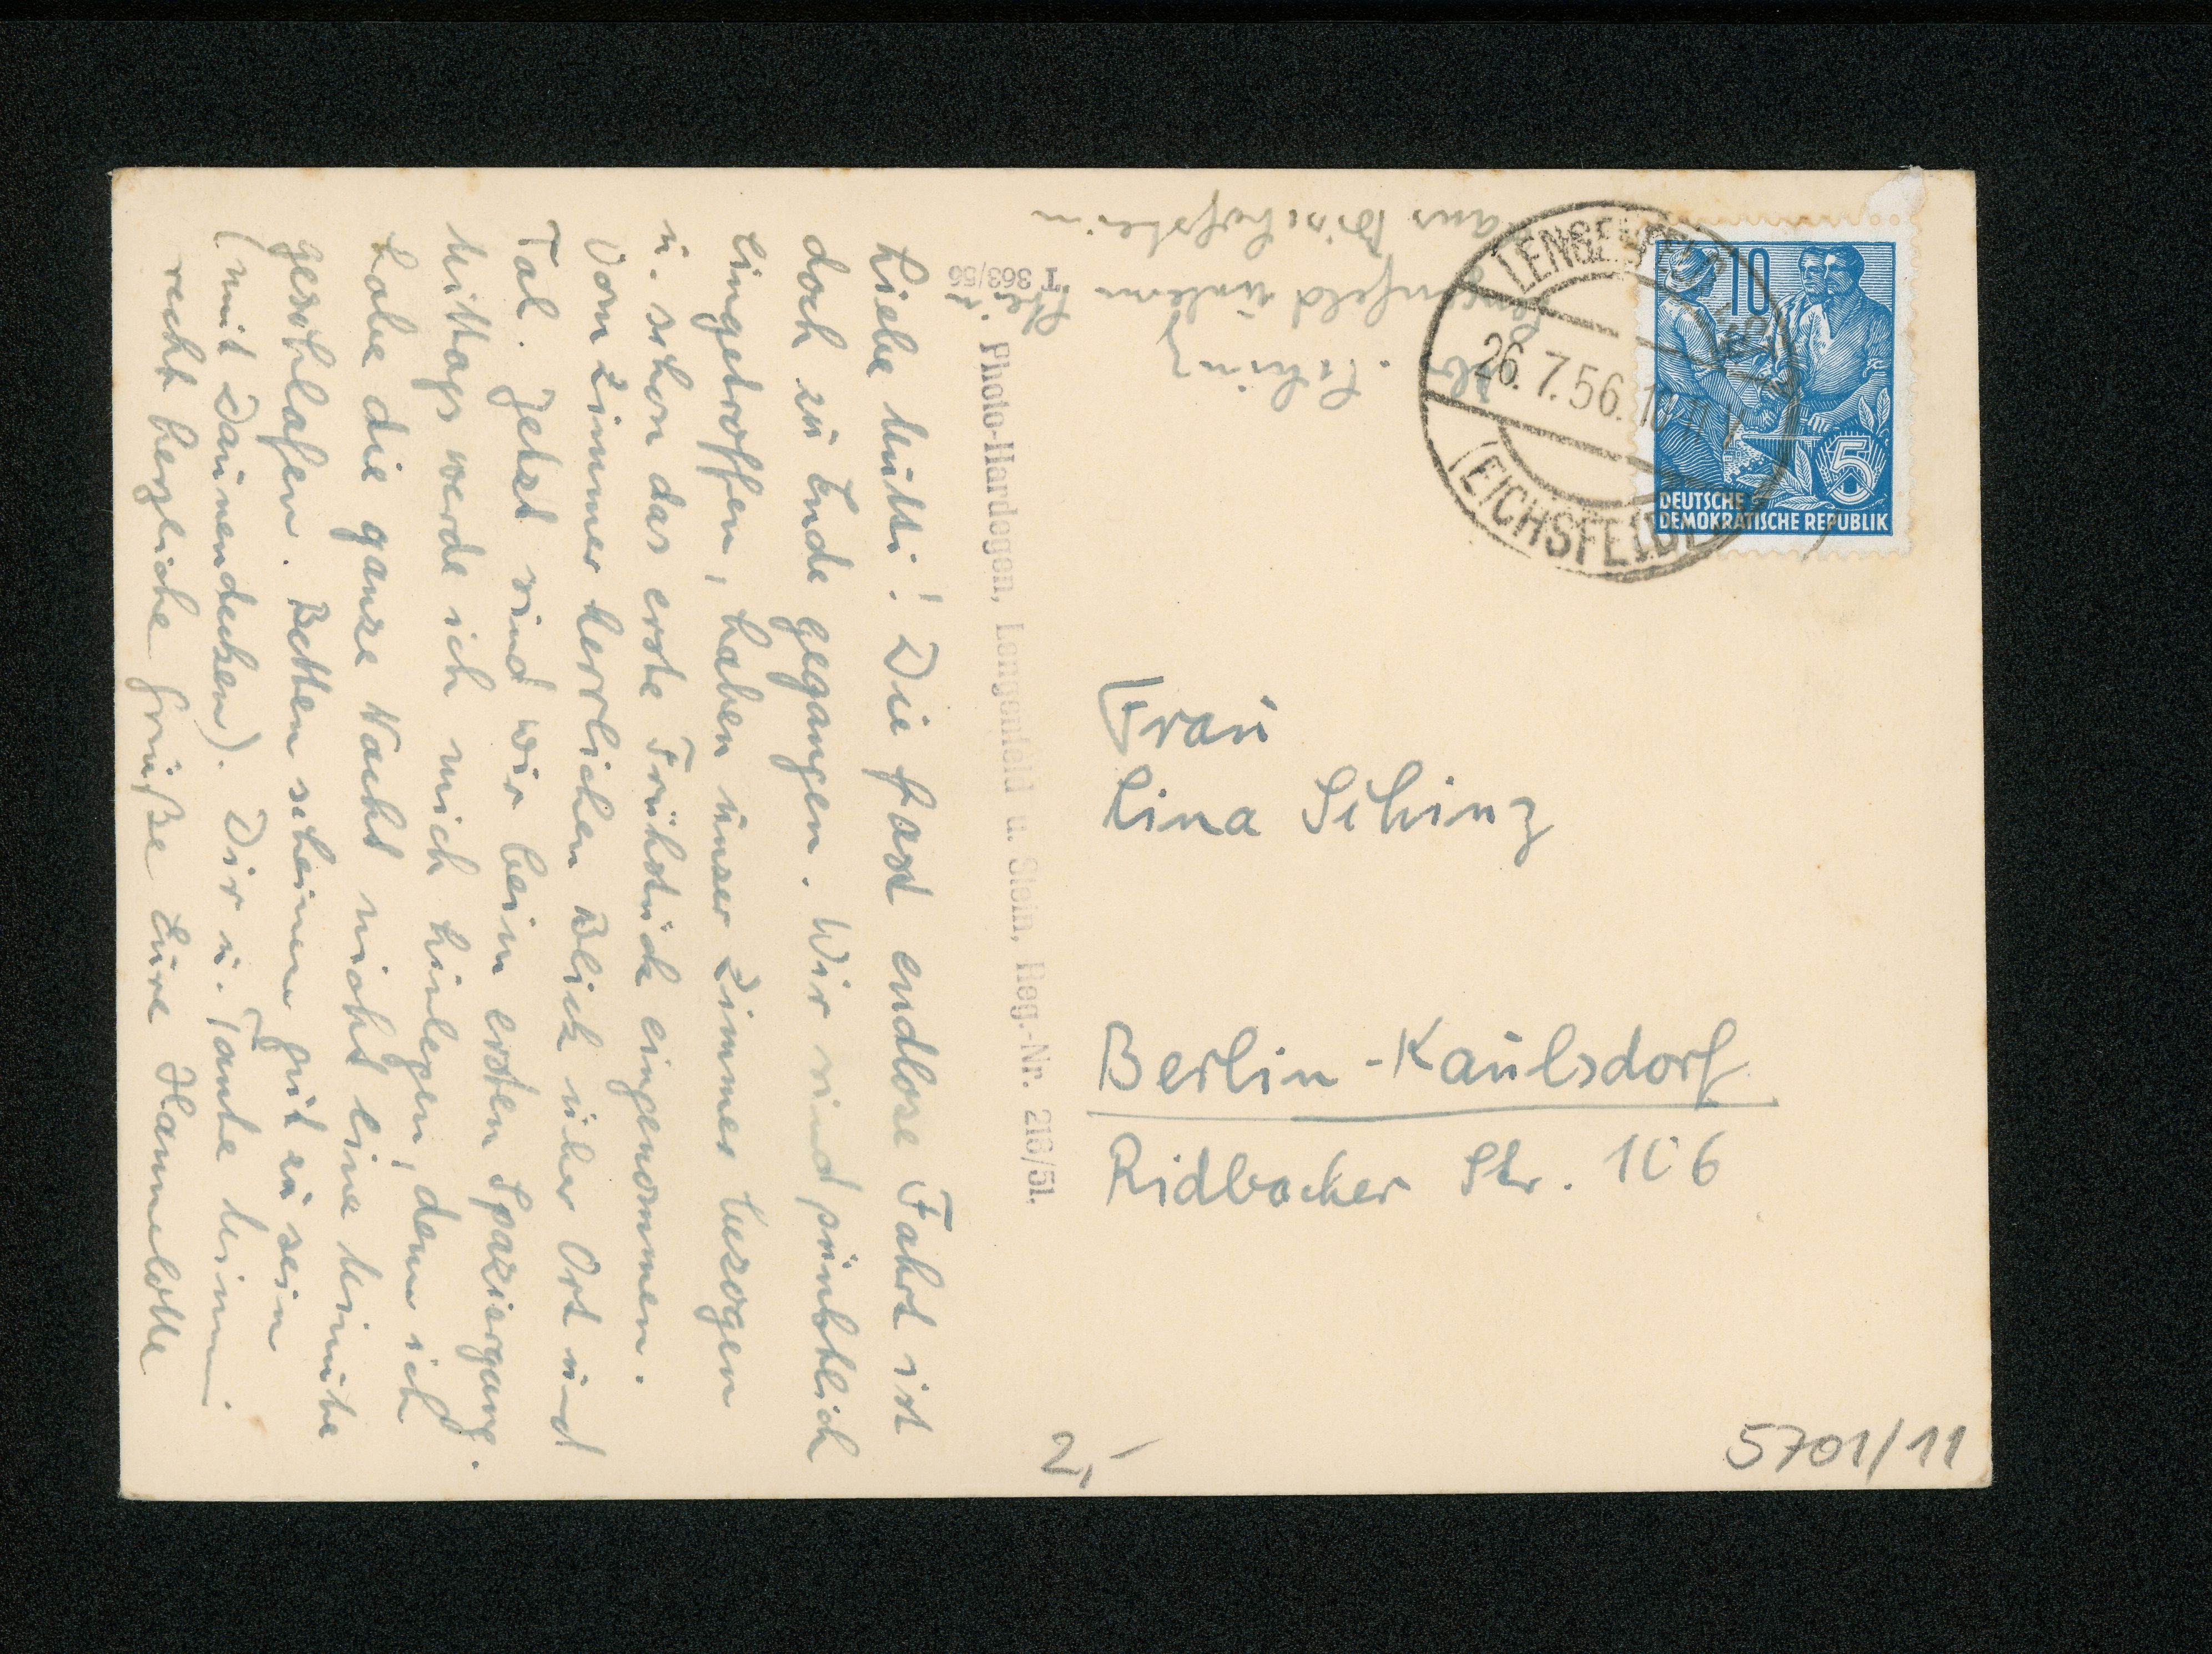 Liebe Mutti! Die fast endlose Fahrt ist
doch zu Ende gegangen. Wir sind pünktlich
eingetroffen, haben unser Zimmer bezogen
u. schon das erste Frühstück eingenommen.
Vom Zimmer herrlichen Blick über Ort und
Tal. Jetzt sind wir beim ersten Spaziergang.
Mittags werde ich mich hinlegen, denn ich
habe die ganze Nacht nicht eine Minute
geschlafen. Betten scheinen gut zu sein
(mit Daunendecken). Dir u. Tante
recht herzliche Grüße Eure Hannelotte
Photo-Hardegen, Lengenfeld u. Stein, Reg.-Nr. 216/51.
T 363/56
Schinz
Lengenfeld unterm
Haus Bischofstein
LENGENFELD
26.7.56.
(EICHSFELD)
10
5
DEUTSCHE
DEMOKRATISCHE REPUBLIK
Frau
Lina Schinz
Berlin-Kaulsdorf
Ridbacher Str. 106
2,-
5701/11